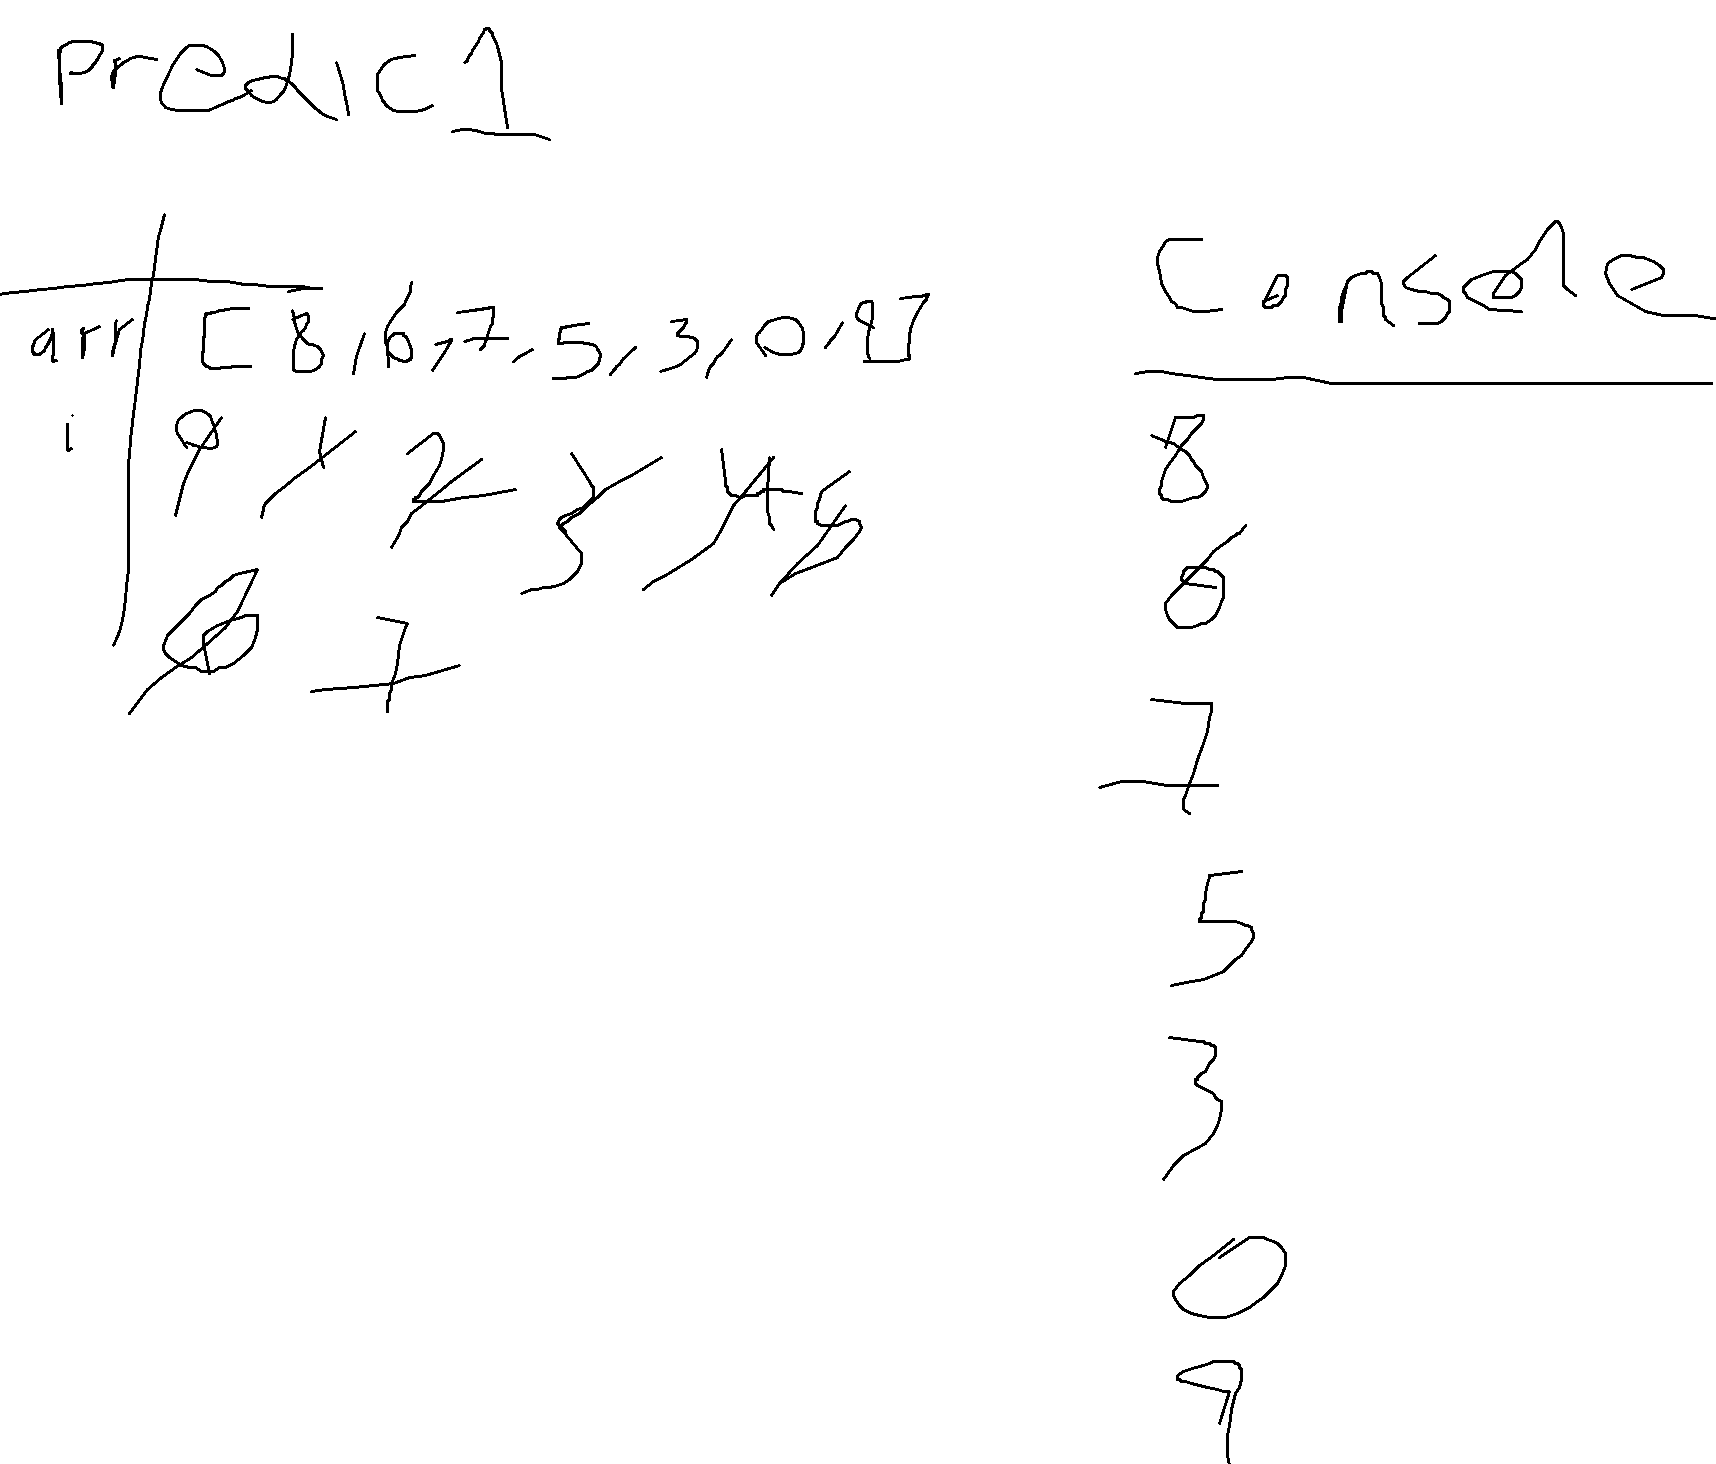 Predic1
arr [8,6,7,5,3,0,9]
i 0 1 2 3 4 5
6 7
Console
8
6
7
5
3
0
9